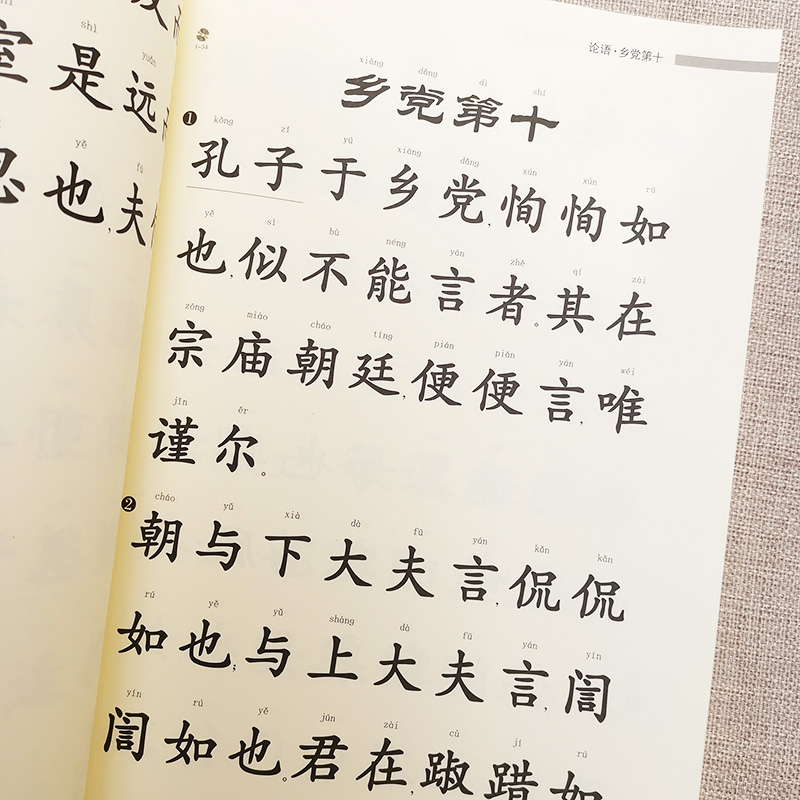 shì yuǎn
室是远
yě fú
也,夫
1-54
论语·乡党第十
xiāng dǎng dì shí
乡党第十
kǒng zǐ yú xiāng dǎng xún xún rú
❶ 孔子于乡党,恂恂如
yě sì bù néng yán zhě qí zài
也,似不能言者。其在
zōng miào cháo tíng pián pián yán wéi
宗庙朝廷,便便言,唯
jǐn ěr
谨尔。
cháo yǔ xià dà fū yán kǎn kǎn
❷ 朝与下大夫言,侃侃
rú yě yǔ shàng dà fū yán yín
如也;与上大夫言,訚
yín rú yě jūn zài cù jí rú
訚如也。君在,踧踖如